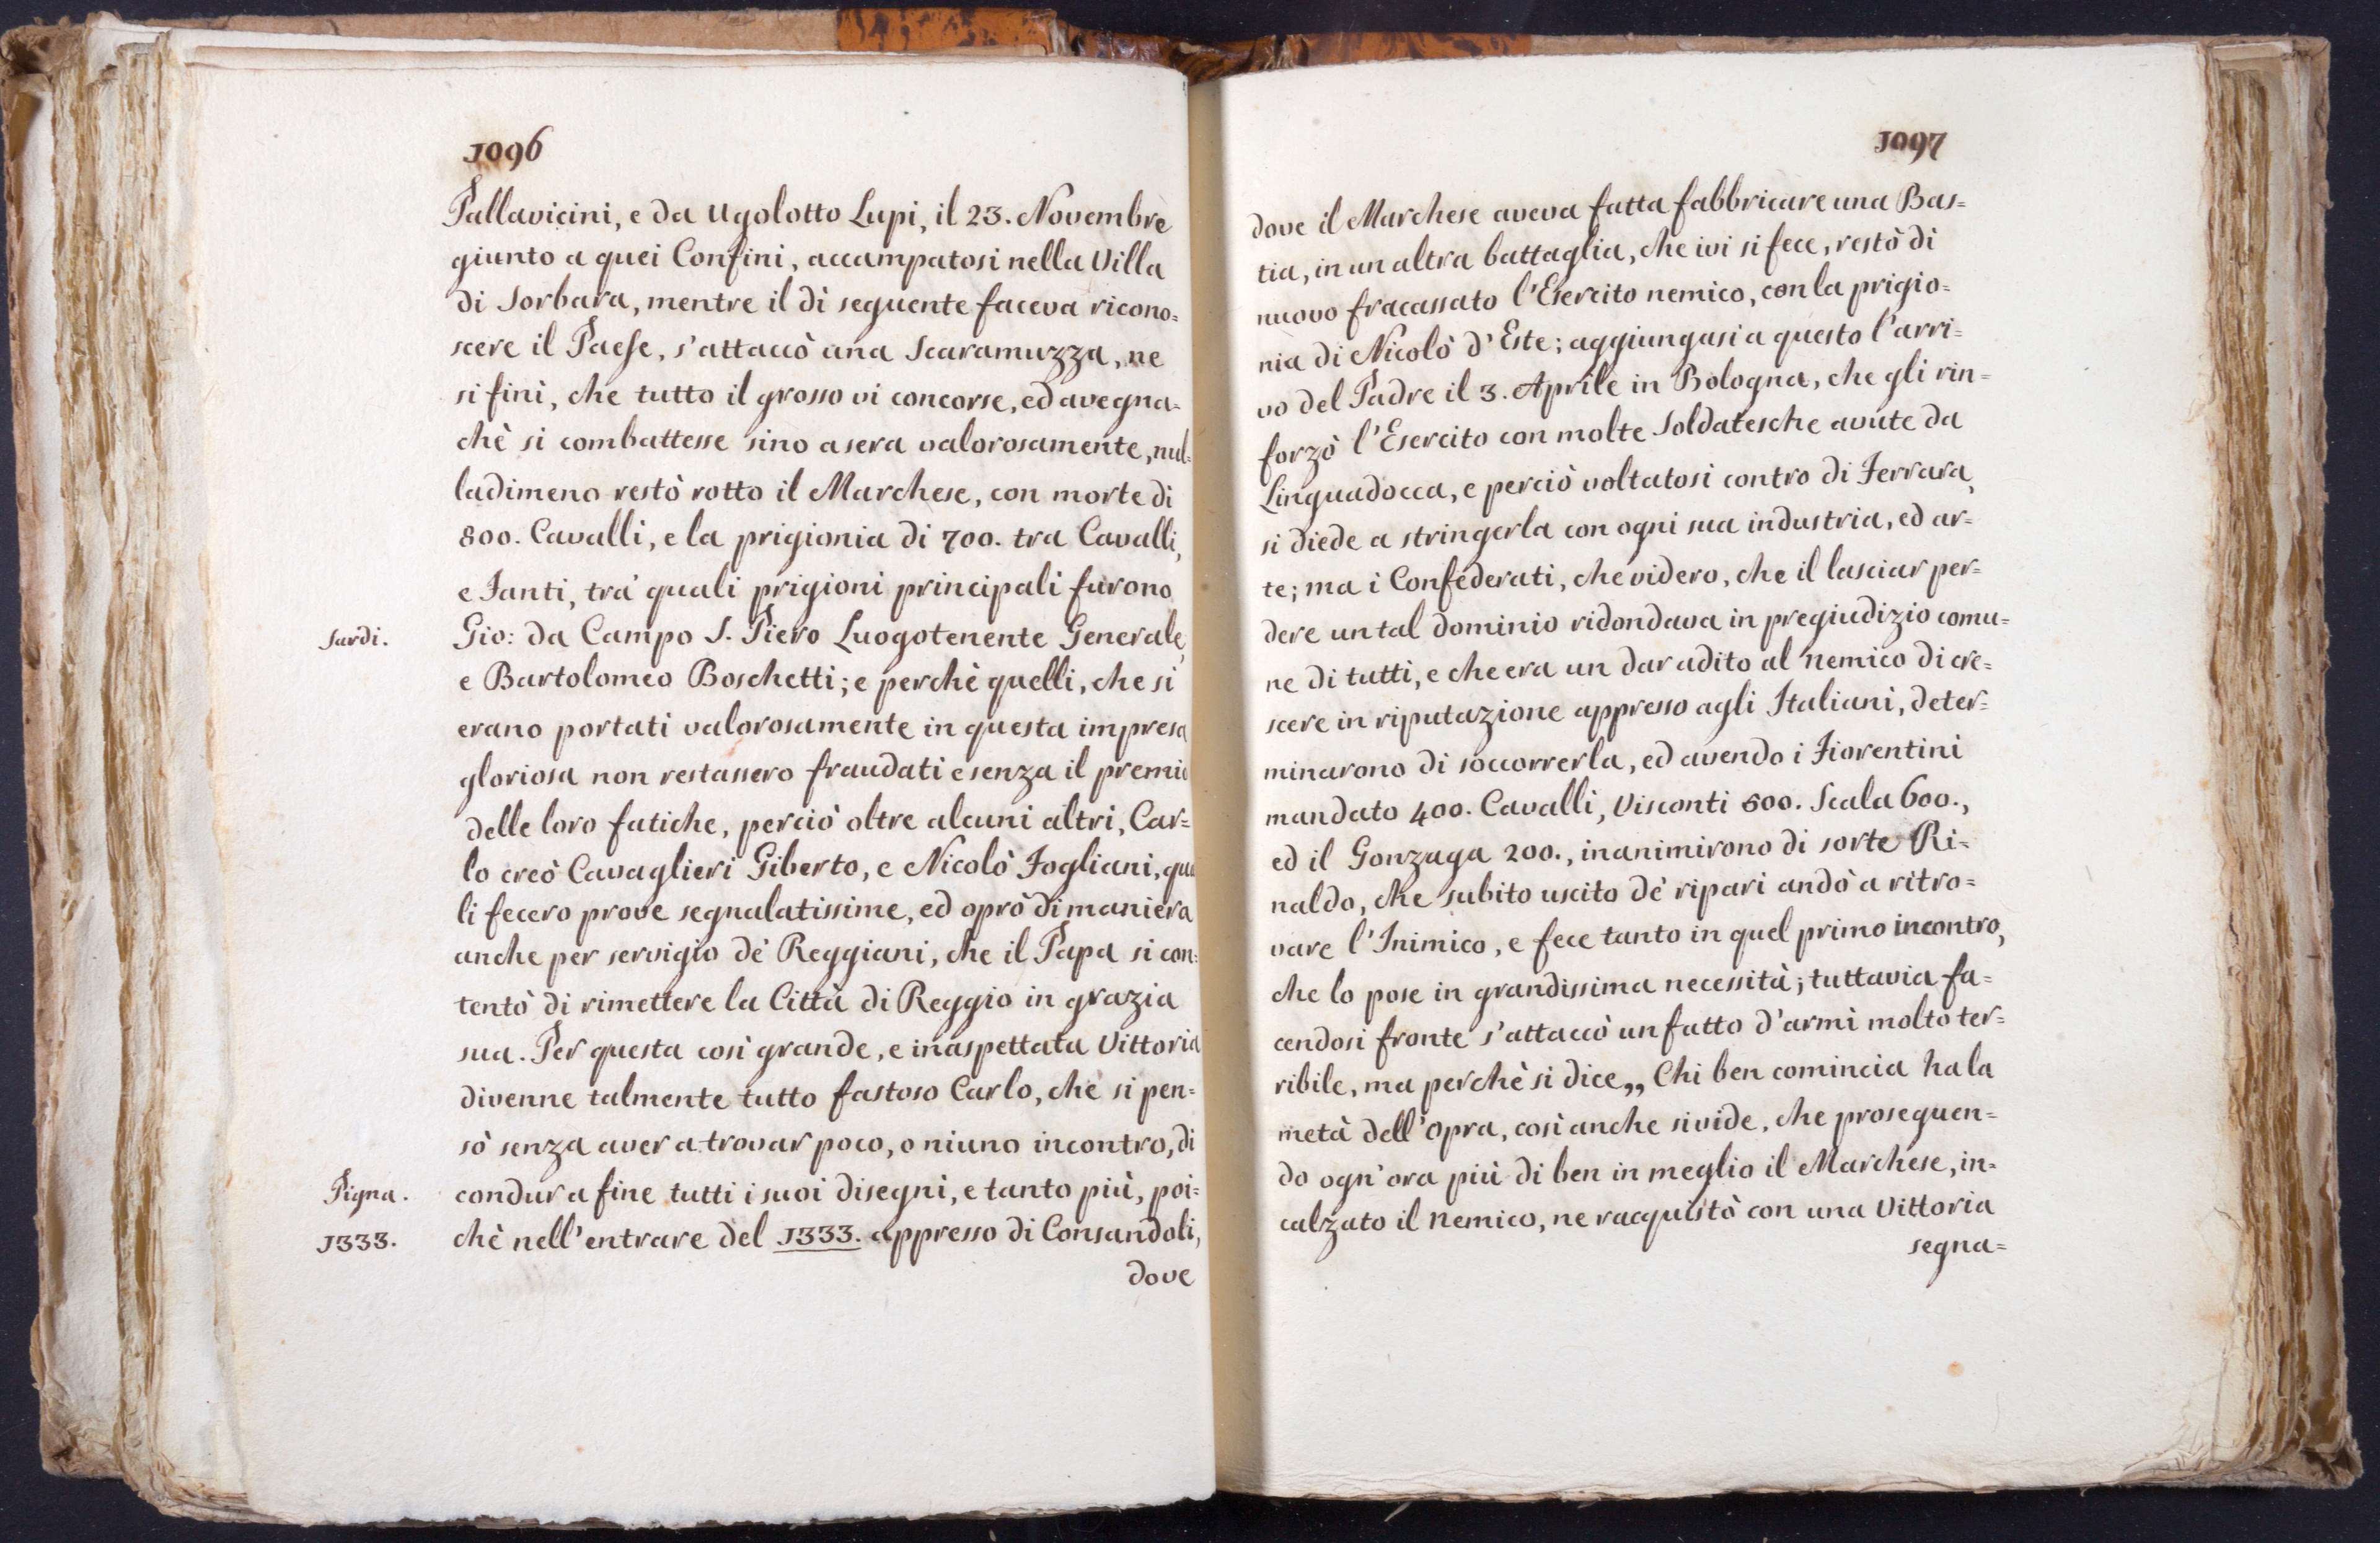 1096
Pallavicini, e da Ugolotto Lupi, il 23. Novembre
giunto a quei Confini, accampatosi nella Villa
di Sorbara, mentre il dì seguente faceva ricono=
scere il Paese, s'attaccò una Scaramuzza, ne
si finì, che tutto il grosso vi concorse, ed avegna=
chè si combattesse sino a sera valorosamente, nul=
ladimeno restò rotto il Marchese, con morte di
800. Cavalli, e la prigionia di 700. tra Cavalli,
e Fanti, trà quali prigioni principali furono
Sardi.
Gio: da Campo S. Piero Luogotenente Generale,
e Bartolomeo Boschetti; e perchè quelli, che si
erano portati valorosamente in questa impresa
gloriosa non restassero fraudati e senza il premio
delle loro fatiche, perciò oltre alcuni altri, Car=
lo creò Cavaglieri Giberto, e Nicolò Fogliani, qua
li fecero prove segnalatissime, ed oprò di maniera
anche per servigio dè Reggiani, che il Papa si con=
tentò di rimettere la Città di Reggio in grazia
sua. Per questa così grande, e inaspettata Vittoria
divenne talmente tutto fastoso Carlo, che si pen=
sò senza aver a trovar poco, o niuno incontro, di
Pigna.
condur a fine tutti i suoi disegni, e tanto più, poi=
1333.
chè nell'entrare del 1333. appresso di Consandoli,
dove
1097
dove il Marchese aveva fatta fabbricare una Bas=
tia, in un altra battaglia, che ivi si fece, restò di
nuovo fracassato l'Esercito nemico, con la prigio=
nia di Nicolò d'Este; aggiungasi a questo l'arri=
vo del Padre il 3. Aprile in Bologna, che gli rin=
forzò l'Esercito con molte Soldatesche avute da
Linguadocca, e perciò voltatosi contro di Ferrara,
si diede a stringerla con ogni sua industria, ed ar=
te; ma i Confederati, che videro, che il lasciar per=
dere un tal dominio ridondava in pregiudizio comu=
ne di tutti, e che era un dar adito al nemico di cre=
scere in riputazione appresso agli Italiani, deter=
minarono di soccorrerla, ed avendo i Fiorentini
mandato 400. Cavalli, Visconti 600. Scala 600.,
ed il Gonzaga 200., inanimirono di sorte Ri=
naldo, che subito uscito dè ripari andò a ritro=
vare l'Inimico, e fece tanto in quel primo incontro,
che lo pose in grandissima necessità; tuttavia fa=
cendosi fronte s'attaccò un fatto d'armi molto ter=
ribile, ma perchè si dice,, Chi ben comincia ha la
metà dell'opra, così anche si vide, che proseguen=
do ogn'ora più di ben in meglio il Marchese, in=
calzato il nemico, ne racquistò con una Vittoria
segna=